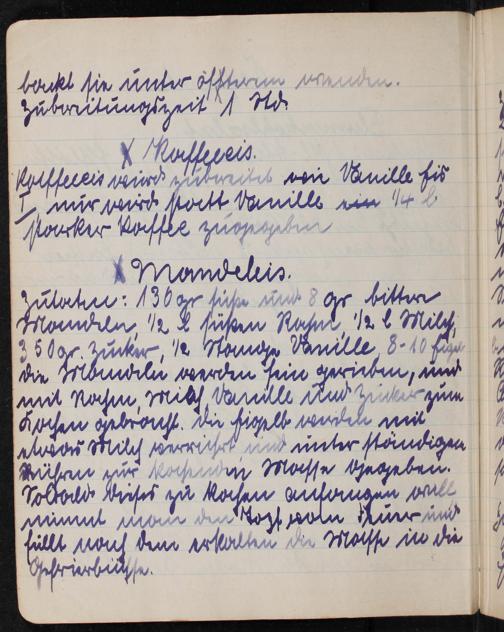 backt sie unter öffterem wenden.
Zubereitungszeit 1 Std.
X Kaffeeeis.
Kaffeeeis wird zubereitet wie Vanille Eis
I, nur wird statt Vanille ein 1/4 l
starker Kaffee zugegeben
X Mandeleis.
Zutaten: 130 gr süße und 8 gr bittere
Mandeln, 1/2 l süßen Rahm, 1/2 l Milch,
350 gr. Zucker, 1/2 Stange Vanille, 8-10 Eigel
die Mandeln werden fein gerieben, und
mit Rahm, Milch Vanille und Zucker zum
Kochen gebracht. die Eigelb werden mit
etwas Milch verrührt und unter ständigem
Rühren zur kochenden Masse gegeben.
Sobald dieses zu kochen anfangen will
nimmt man den Topf vom Feuer und
füllt nach dem erkalten die Masse in die
Gefrierbüchse.